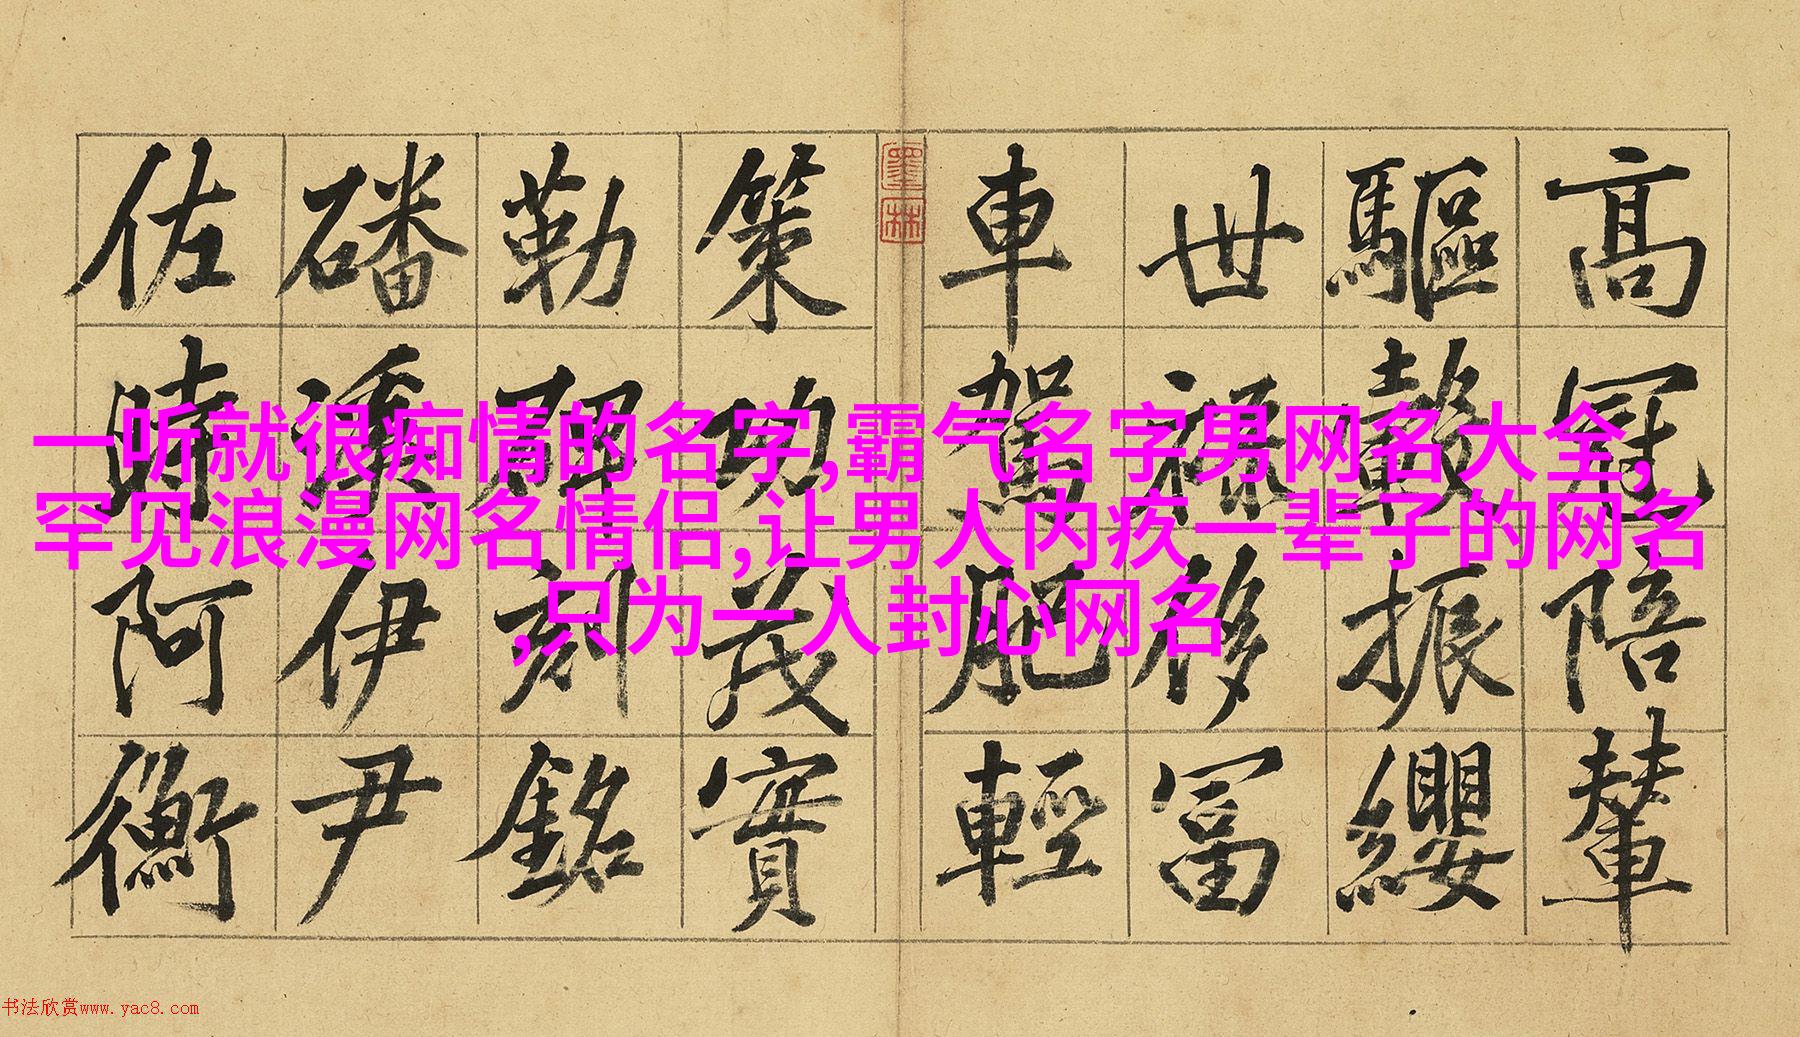 高冠陪輦
驅轂振纓
世祿侈冨
車駕肥輕
墨林
策功茂實
勒碑刻銘
磻溪伊尹
佐時阿衡
一听就很痴情的名字,霸气名字男网名大全,
罕见浪漫网名情侣,让男人内疚一辈子的网名
,只为一人封心网名
书法欣赏www.yac8.com